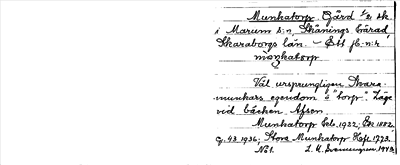 Munkatorp. Gård 1/2 mtl.
i Marum s:n, Skånings härad,
Skaraborgs län. – Ett fl. n:r
muŋkatorp
Väl ursprungligen Skara
munkars egendom o. "torp". Läge
vid bäcken Afsen.
Munkatorp Geb. 1922; Ek 1882
Cj. 43 1936; Stora Munkatorp Hft. 1773.
No 1. 1943.